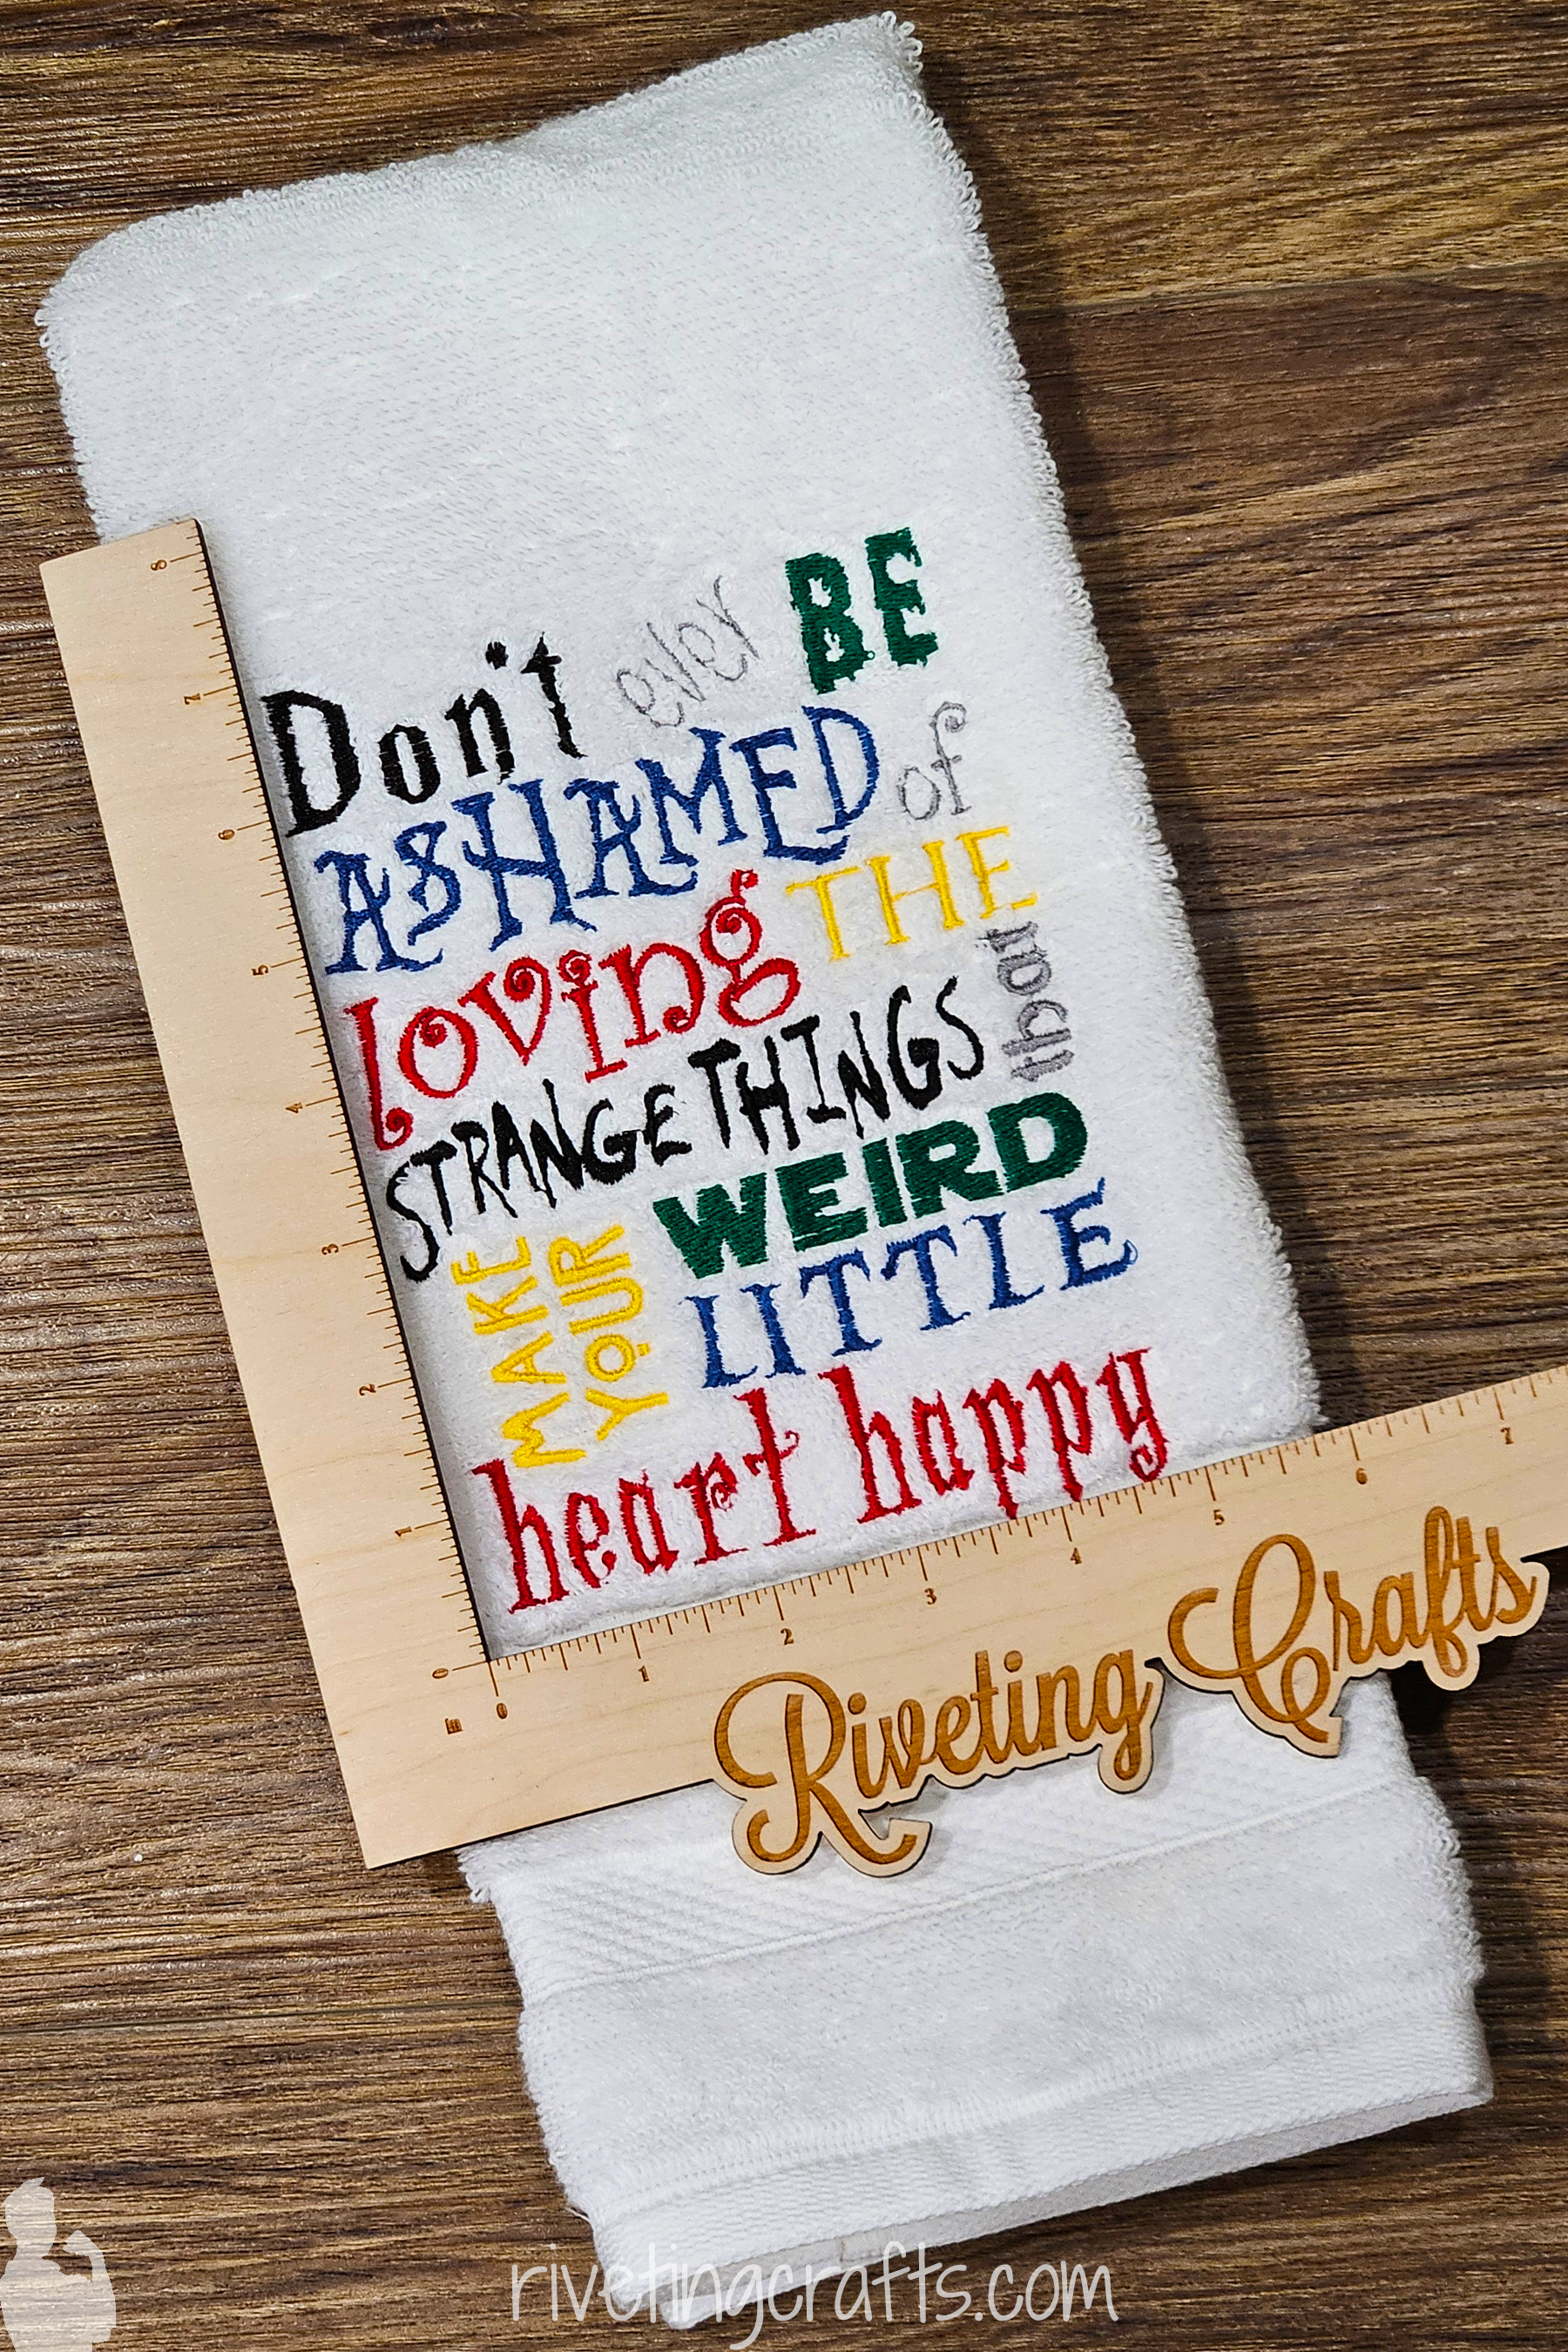 Don't ever BE
ASHAMED of
loving THE
STRANGE THINGS that
MAKE
YOUR
WEIRD
LITTLE
heart happy
8
7
6
5
4
3
2
1
0
in
0 1 2 3 4 5 6 7
Riveting Crafts
rivetingcrafts.com